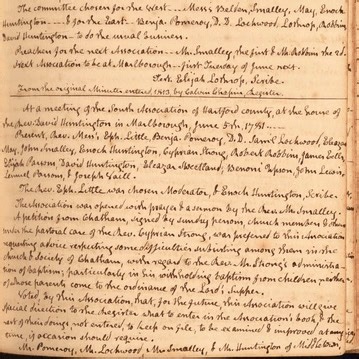 The committee chosen for the West --- Messrs Belden, Smalley, May, Enoch
Huntington --- & for the East -- Benja. Pomeroy, D.D. Lockwood, Lothrop, Robbins
David Huntington -- to do the usual business.
Preachers for the next Association -- Mr. Smalley, the first & Mr. Robbins the 2d.
Next Association to be at Marlborough -- first Tuesday of June next.
Test. Elijah Lothrop, Scribe.
From the original Minutes entered, 1813, by Calvin Chapin, Register.
At a meeting of the South Association of Hartford county, at the house of
the Rev. David Huntington in Marlborough, June 5th, 1781 ---
Present, Rev. Messrs Eph. Little, Benja. Pomeroy, D.D. Saml. Lockwood, Eleazar
May, John Smalley, Enoch Huntington, Cyprian Strong, Robert Robbins, James Eells,
Elijah Parsons, David Huntington, Eleazar Howelland, Benoni Upson, John Lewis,
Lemuel Parsons, & Joseph Vaill.
The Rev. Eph. Little was chosen Moderator, & Enoch Huntington, Scribe.
The Association was opened with prayer & a sermon by the Rev. Mr. Smalley.
A petition from Chatham, signed by sundry persons, church members & others
under the pastoral care of the Rev. Cyprian Strong, was preferred to this Association
requesting advice respecting some difficulties subsisting among them in the
church & society of Chatham, with regard to the Rev. Mr. Strong's administra-
tion of baptism; particularly in his withholding baptism from children neither
of whose parents come to the ordinance of the Lord's Supper.
Voted, by this Association, that, for the future, this Association will give
special direction to the Register what to enter in the Association's book, & the
rest of their doings not entered, to keep on file, to be examined & improved at any
time, if occasion should require.
Mr. Pomeroy, Mr. Lockwood, Mr. Smalley, & Mr. Huntington of